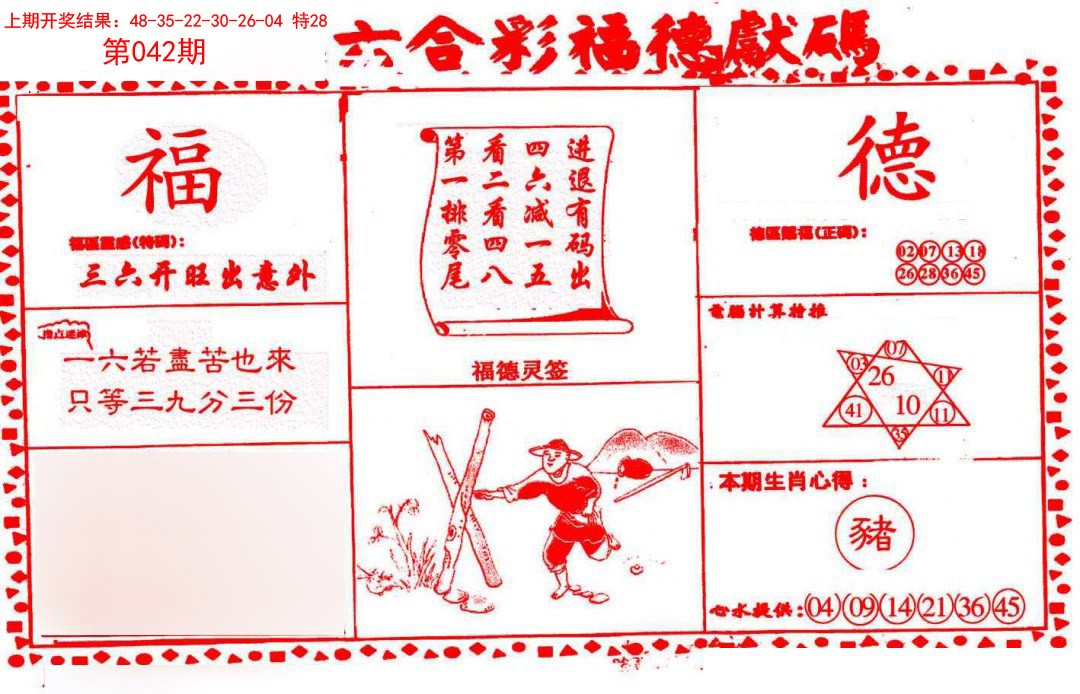 上期开奖结果：48-35-22-30-26-04 特28
第042期
六合彩福德獻碼
福
福區靈感(特码)：
三六开旺出意外
一六若盡苦也來
只等三九分三份
进退有码出
四六减一五
看二看四八
第一排零尾
福德灵签
德
德區賜福(正码)：
02 07 13 18
26 28 36 45
電腦計算拾推
07
03
26
1
41
10
11
35
本期生肖心得：
豬
心水提供：04 09 14 21 36 45